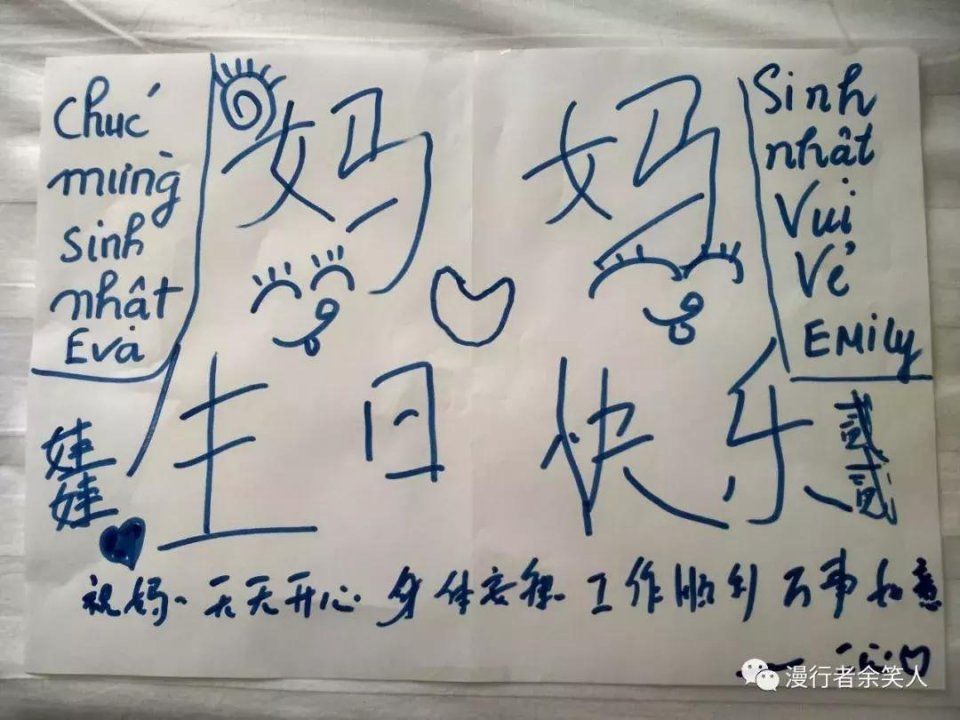 Chúc
mừng
sinh
nhật
Eva
妈妈
生日快乐
Sinh
nhật
Vui
Vẻ
EMily
娃
娃
贰
贰
祝妈 天天开心 身体安康 工作顺利 万事如意
漫行者余笑人